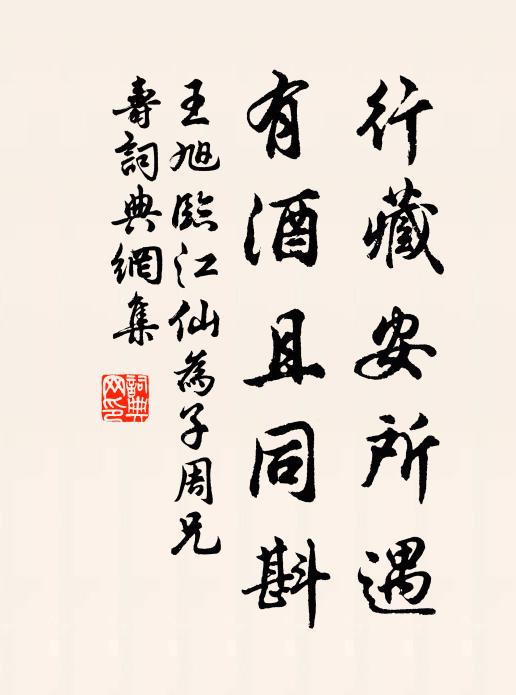 行藏安所遇
有酒且同斟
王旭臨江仙為子周兄
壽詞典網集
詞典
网印